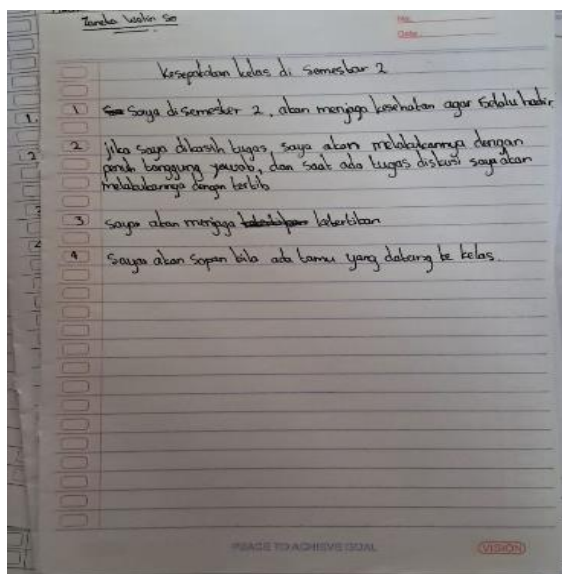 No.
Date.
Kesepakatan kelas di semester 2
1 Saya di semester 2, akan menjaga kesehatan agar selalu hadir
2 jika saya dikasih tugas, saya akan melakukannya dengan
penuh tanggung jawab, dan saat ada tugas diskusi saya akan
melakukannya dengan tertib
3 saya akan menjaga ketertiban
4 saya akan sopan bila ada tamu yang datang ke kelas.
TO ACHIEVE GOAL
VISION